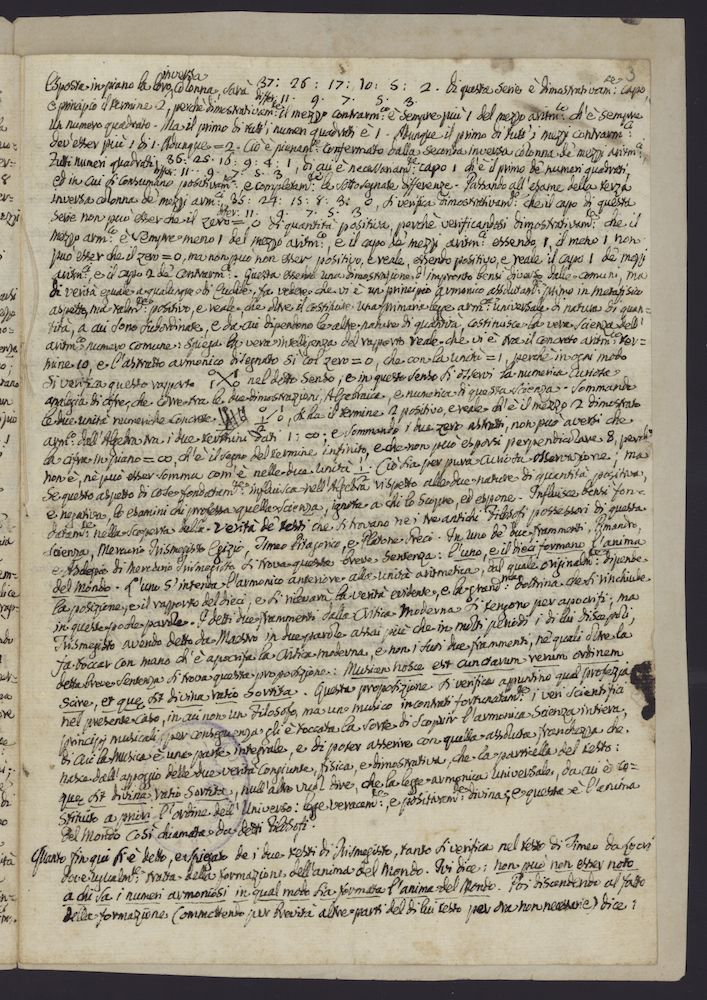 3
inversa
Esposta in piano la loro colonna, sarà 37: 26: 17: 10: 5: 2. Di questa serie è dimostrativam: capo,
differ: 11 · 9 · 7 · 5 · 3
e principio il termine 2, perchè dimostrativam: il mezzo contrarm: è sempre più 1 del mezzo aritm: ch'è sempre
un numero quadrato. Ma il primo di tutt'i numeri quadrati è 1. Adunque il primo di tutt'i mezzi contrarm:
dev'esser più 1 di 1. Adunque = 2. Ciò è pienam: confermato dalla seconda inversa colonna de' mezzi aritm:
Tutti numeri quadrati 36: 25: 16: 9: 4: 1, di cui è necessariam: capo 1 ch'è il primo de' numeri quadrati,
differ: 11 · 9 · 7 · 5 · 3
ed in cui si consumano positivam: e completam: le sottosegnate differenze. Passando all'esame della terza
inversa colonna de' mezzi arm: 35: 24: 15: 8: 3: 0, si verifica dimostrativam: che il capo di questa
differ: 11 · 9 · 7 · 5 · 3
serie non può esser che il zero = 0 di quantità positiva, perchè verificandosi dimostrativam: che il
mezzo arm: è sempre meno 1 del mezzo aritm:, e il capo de' mezzi aritm: essendo 1, 1 meno 1 non
può esser che il zero = 0, ma non può non esser positivo, e reale, essendo positivo, e reale il capo 1 de' mezzi
aritm: e il capo 2 de' contrarm: Questa essendo una dimostrazione d'impronto bensì diverso dalle comuni, ma
di verità eguale a qualunque di Euclide, fa vedere che vi è un principio armonico assolutam: primo in metafisico
aspetto, ma positivo, e reale, che oltre il costituire una primaria legge arm: universale di natura di quan-
tità, a cui sono subordinate, e da cui dipendono le altre nature di quantità, costituisce la vera scienza dell'
aritm: numero comune: spiega la vera intelligenza del rapporto reale che vi è tra il concreto aritm: ter-
mine 10, e l'astratto armonico disegnato sì col zero = 0, che con la unità = 1, perchè in ogni modo
si verifica questo rapporto nel detto senso, e in questo senso si osservi la numerica curiosa
analogia di cifre, che corre tra le due dimostrazioni, Algebraica, e numerica di questa scienza. Sommando
le due unità numeriche concrete si ha il termine 2 positivo, e reale ch'è il mezzo 2 dimostrato
arm: dall'Algebra tra i due termini dati 1: ∞, e sommando i due zero astratti, non può aversi che
la cifra in piano = ∞, ch'è il segno del termine infinito, e che non può esporsi perpendicolare 8, perchè
non è, nè può esser somma com'è nelle due unità. Ciò sia per pura curiosa osservazione; ma
se questo aspetto di cose fondatam: influisca nell'Algebra rispetto alle due nature di quantità positiva,
e negativa, lo esamini chi professa quella scienza, ignota a chi lo scopre, ed espone. Influisce bensì fon-
datam: nella scoperta della verità de' testi che si trovano ne' i tre antichi Filosofi possessori di questa
scienza, Mercurio Trismegisto Egizio, Timeo Pitagorico, e Platone Greci. In uno de' due frammenti, Pimandro,
e Asclepio di Mercurio Trismegisto si trova questa breve sentenza: L'uno, e il dieci formano l'anima
del Mondo. L'uno s'intenda l'armonico anteriore alla unità aritmetica, dal quale originalm: dipende
la posizione, e il rapporto del dieci, e si rileverà la verità evidente, e la grand: dottrina che si rinchiude
in queste poche parole. I detti due frammenti dalla Critica moderna si tengono per apocrifi; ma
Trismegisto avendo detto da Maestro in due parole assai più che in molti periodi i di lui discepoli,
fa toccar con mano ch'è apocrifa la Critica moderna, e non i suoi due frammenti, ne' quali oltre la
detta breve sentenza si trova questa proposizione: Musicen nosse est cunctarum rerum ordinem
scire, et quae sit divina ratio sortita. Questa proposizione si verifica appuntino qual profezia
nel presente caso, in cui non un Filosofo, ma un musico incontrati fortunatam: i veri scientifici
principj musicali per conseguenza gli è toccata la sorte di scoprir l'armonica scienza intiera,
di cui la Musica è una parte integrale, e di poter asserire con quella assoluta franchezza che
nasce dall'appoggio delle due verità congiunte, fisica, e dimostrativa, che la particella del testo:
quae sit divina ratio sortita, null'altro vuol dire, che la legge armonica universale, da cui è co-
stituito a priori l'ordine dell'Universo: legge veracem:, e positivam: divina; e questa è l'anima
del Mondo così chiamata da detti Filosofi.
Quanto fin qui si è detto, e spiegato de' i due testi di Trismegisto, tanto si verifica nel testo di Timeo da Locri
dove egualm: tratta della formazione dell'anima del Mondo. Ivi dice: non può non esser noto
a chi sa i numeri armoniosi in qual modo sia formata l'anima del Mondo. Poi discendendo al fatto
della formazione (ommettendo per brevità altre parti del di lui testo per ora non necessarie) dice: